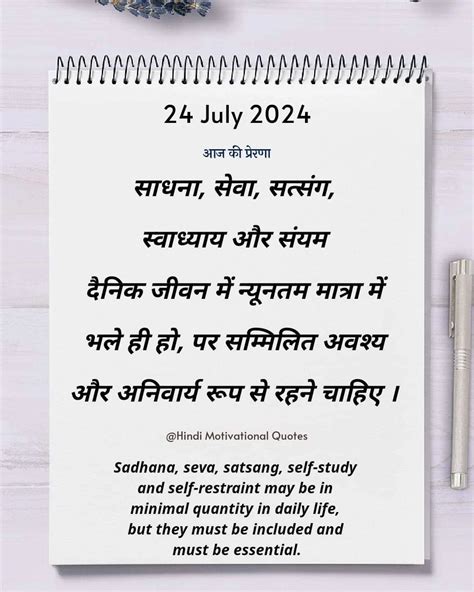 24 July 2024
आज की प्रेरणा
साधना, सेवा, सत्संग,
स्वाध्याय और संयम
दैनिक जीवन में न्यूनतम मात्रा में
भले ही हो, पर सम्मिलित अवश्य
और अनिवार्य रूप से रहने चाहिए ।
@Hindi Motivational Quotes
Sadhana, seva, satsang, self-study
and self-restraint may be in
minimal quantity in daily life,
but they must be included and
must be essential.